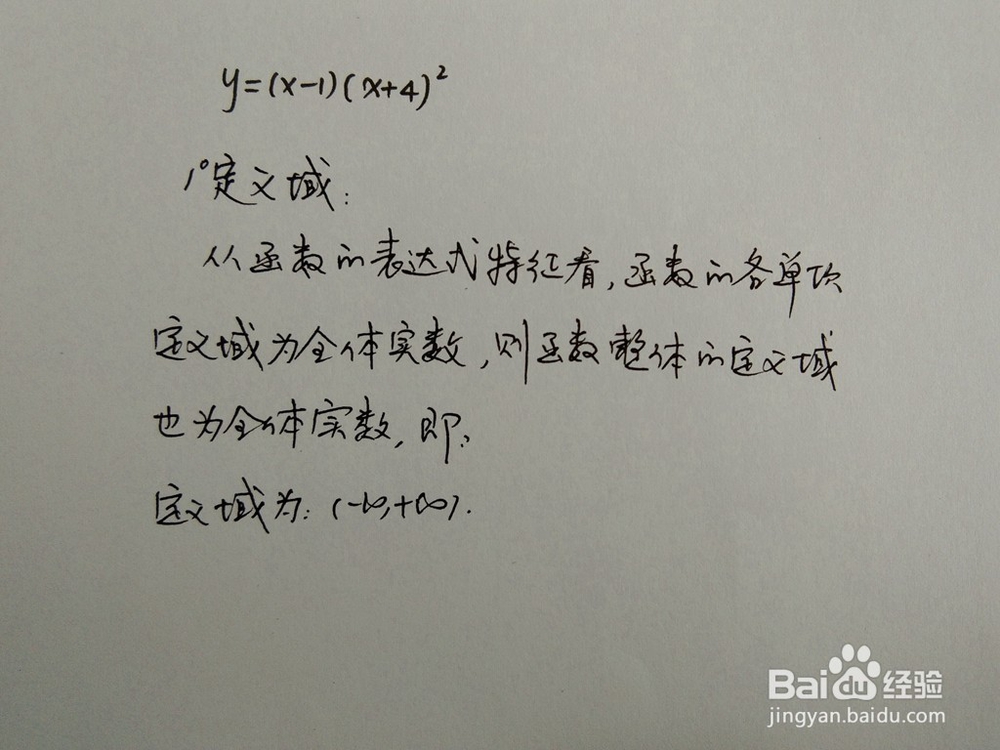 y=(x-1)(x+4)²
1°定义域:
从函数的表达式特征看,函数的各单项
定义域为全体实数,则函数整体的定义域
也为全体实数,即:
定义域为:(-∞,+∞).
Baidu经验
jingyan.baidu.com